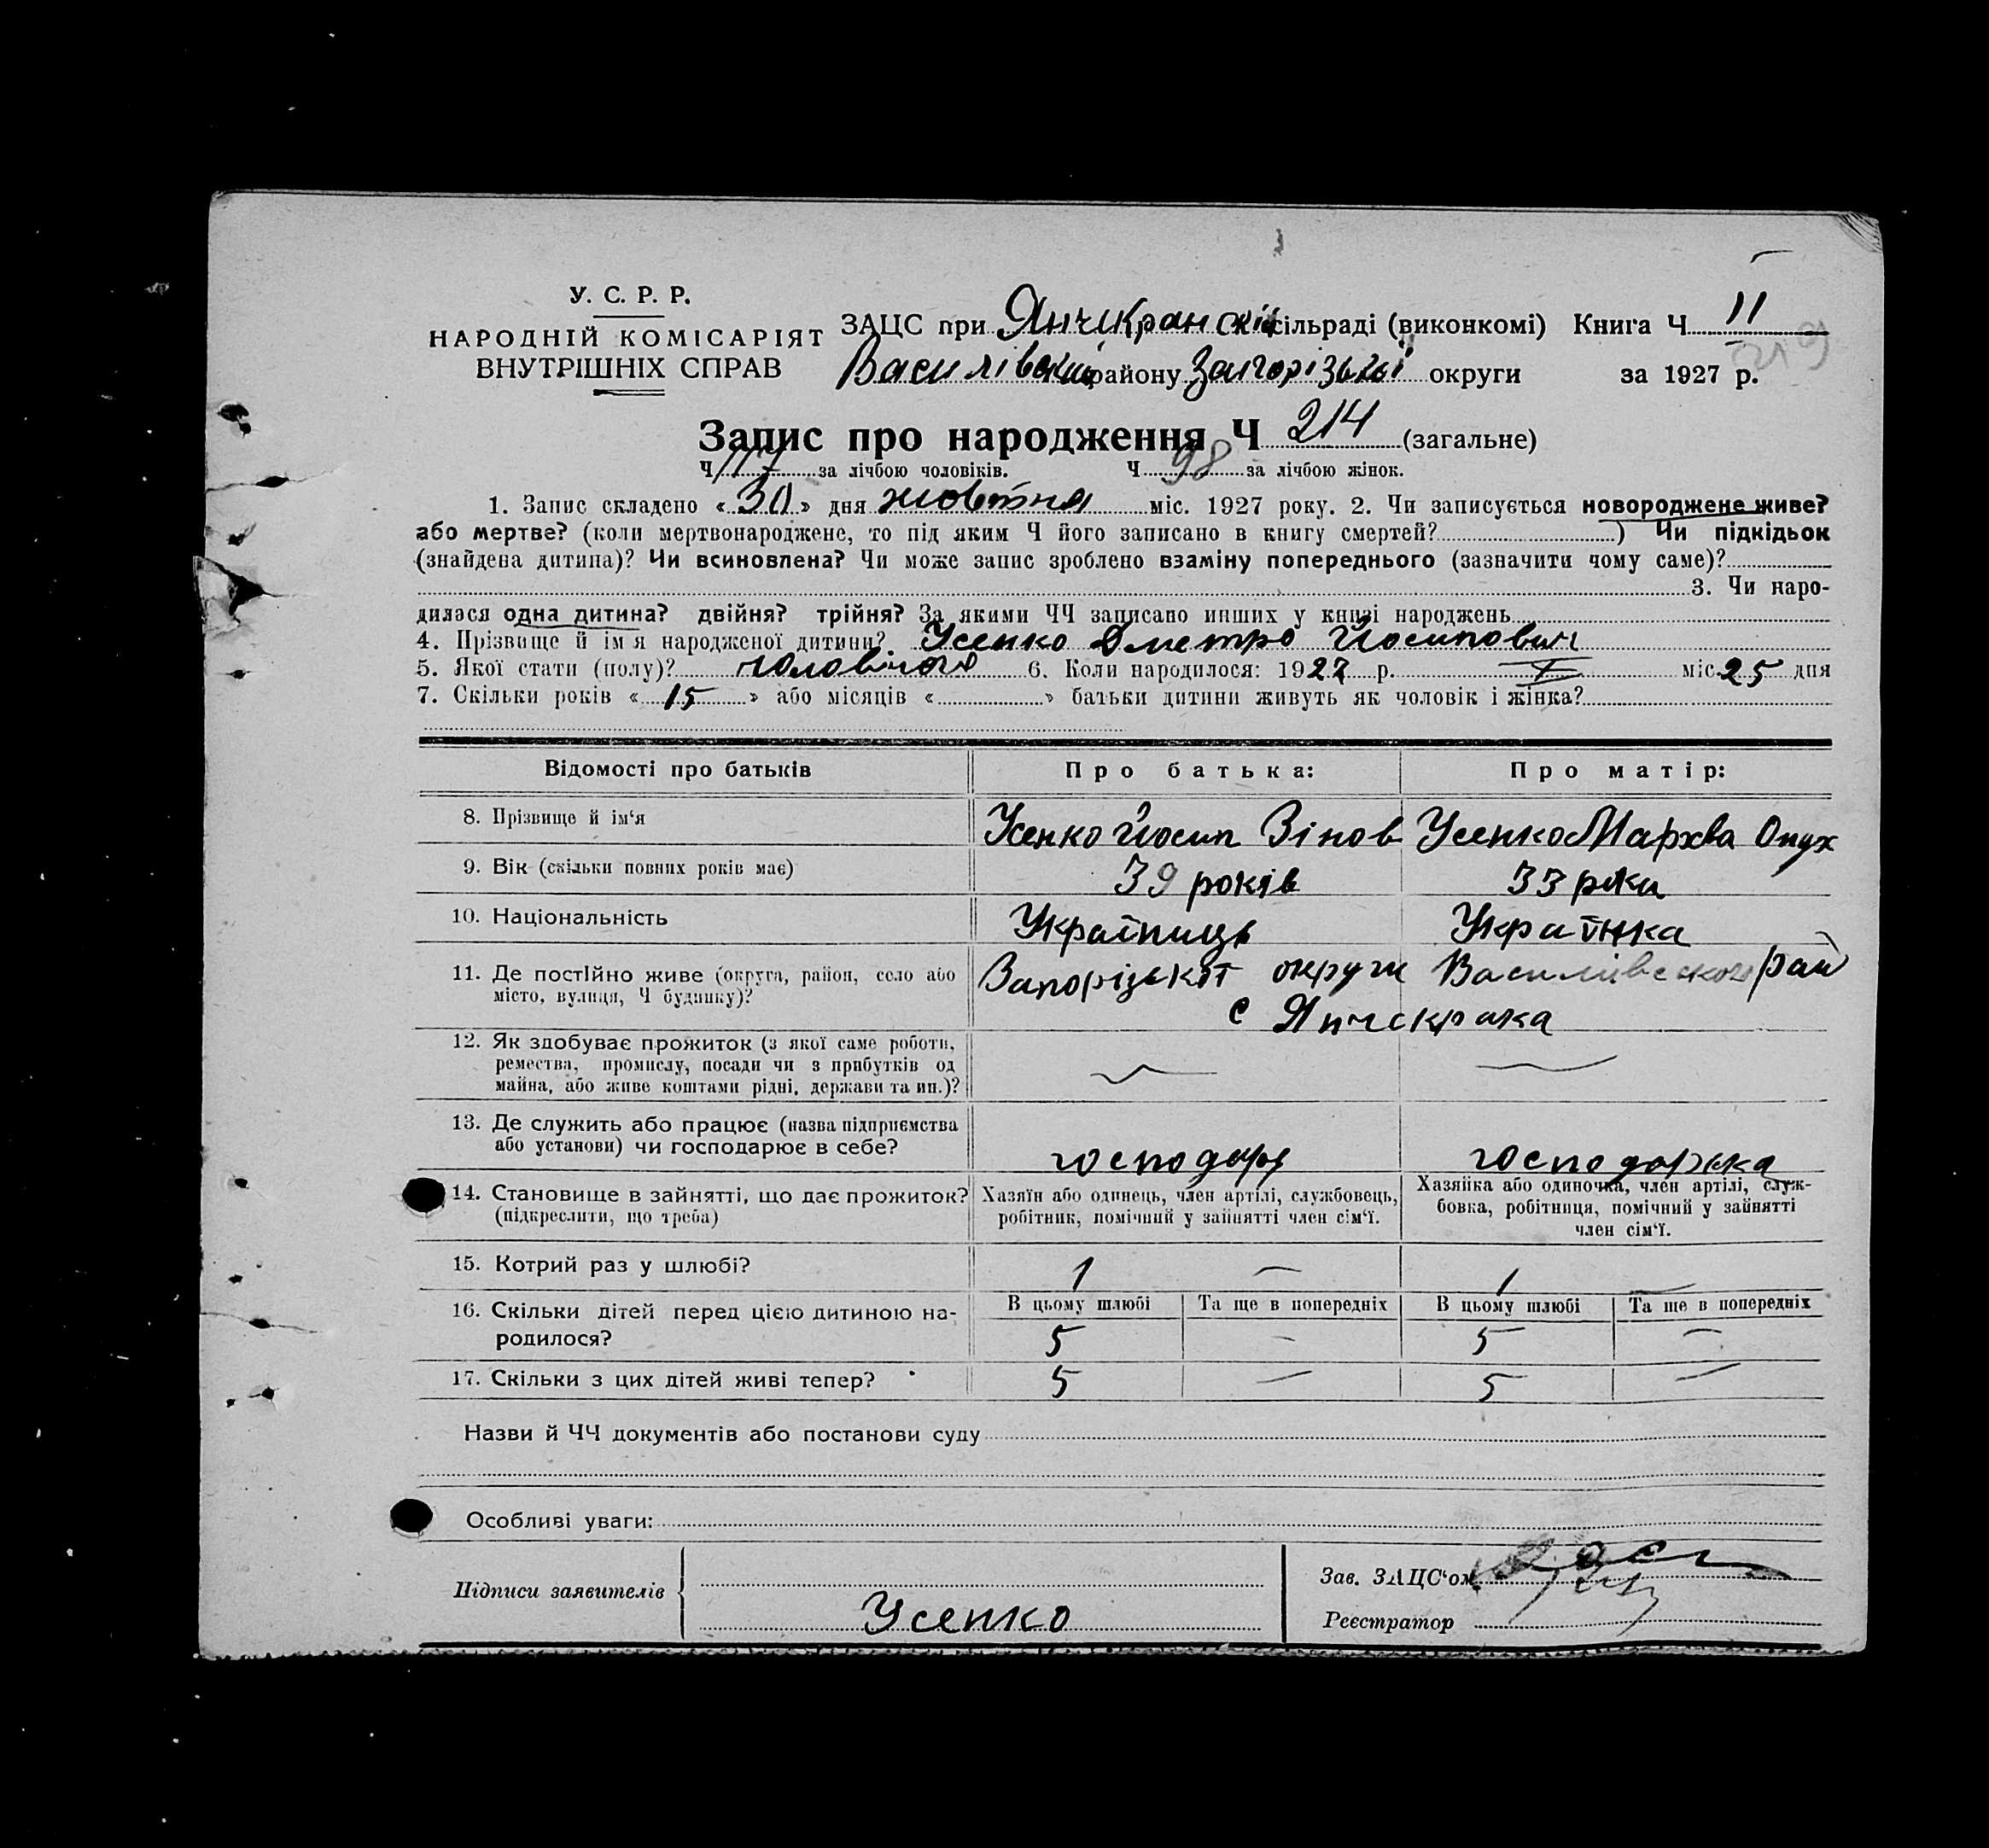 У. С. Р. Р.
НАРОДНІЙ КОМІСАРІЯТ
ВНУТРІШНІХ СПРАВ
ЗАЦС при Янчикранскій сільраді (виконкомі) Книга Ч II
Василівськ району Запорізької округи за 1927 р.
219
Запис про народження Ч 214 (загальне)
Ч 117 за лічбою чоловіків. Ч 98 за лічбою жінок.
1. Запис складено «30» дня жовтня міс. 1927 року. 2. Чи записується новороджене живе?
або мертве? (коли мертвонароджене, то під яким Ч його записано в книгу смертей? ) Чи підкідьок
(знайдена дитина)? Чи всиновлена? Чи може запис зроблено взаміну попереднього (зазначити чому саме)?
3. Чи наро-
дилася одна дитина? двійня? трійня? За якими ЧЧ записано инших у книзі народжень
4. Прізвище й ім'я народженої дитини? Усенко Дметро Йосипович
5. Якої стати (полу)? чоловічого 6. Коли народилося: 1927 р. X міс. 25 дня
7. Скільки років «15» або місяців « » батьки дитини живуть як чоловік і жінка?
Відомості про батьків Про батька: Про матір:
8. Прізвище й ім'я Усенко Йосип Зінов Усенко Мархва Опух
9. Вік (скільки повних років має) 39 років 33 роки
10. Національність Українць Українка
11. Де постійно живе (округа, район, село або Запорізької округи Василівського рай
місто, вулиця, Ч будинку)? с Янчекрака
12. Як здобуває прожиток (з якої саме роботи,
ремества, промислу, посади чи з прибутків од
майна, або живе коштами рідні, держави та ин.)?
13. Де служить або працює (назва підприємства
або установи) чи господарює в себе? господарь господарька
14. Становище в зайнятті, що дає прожиток? Хазяїн або одинець, член артілі, службовець, Хазяйка або одиночка, член артілі, служ-
(підкреслити, що треба) робітник, помічний у зайнятті член сім'ї. бовка, робітниця, помічний у зайнятті
член сім'ї.
15. Котрий раз у шлюбі? 1 — 1 —
16. Скільки дітей перед цією дитиною на- В цьому шлюбі Та ще в попередніх В цьому шлюбі Та ще в попередніх
родилося? 5 — 5 —
17. Скільки з цих дітей живі тепер? 5 — 5 —
Назви й ЧЧ документів або постанови суду
Особливі уваги:
Підписи заявителів Усенко
Зав. ЗАЦС'ом
Реєстратор